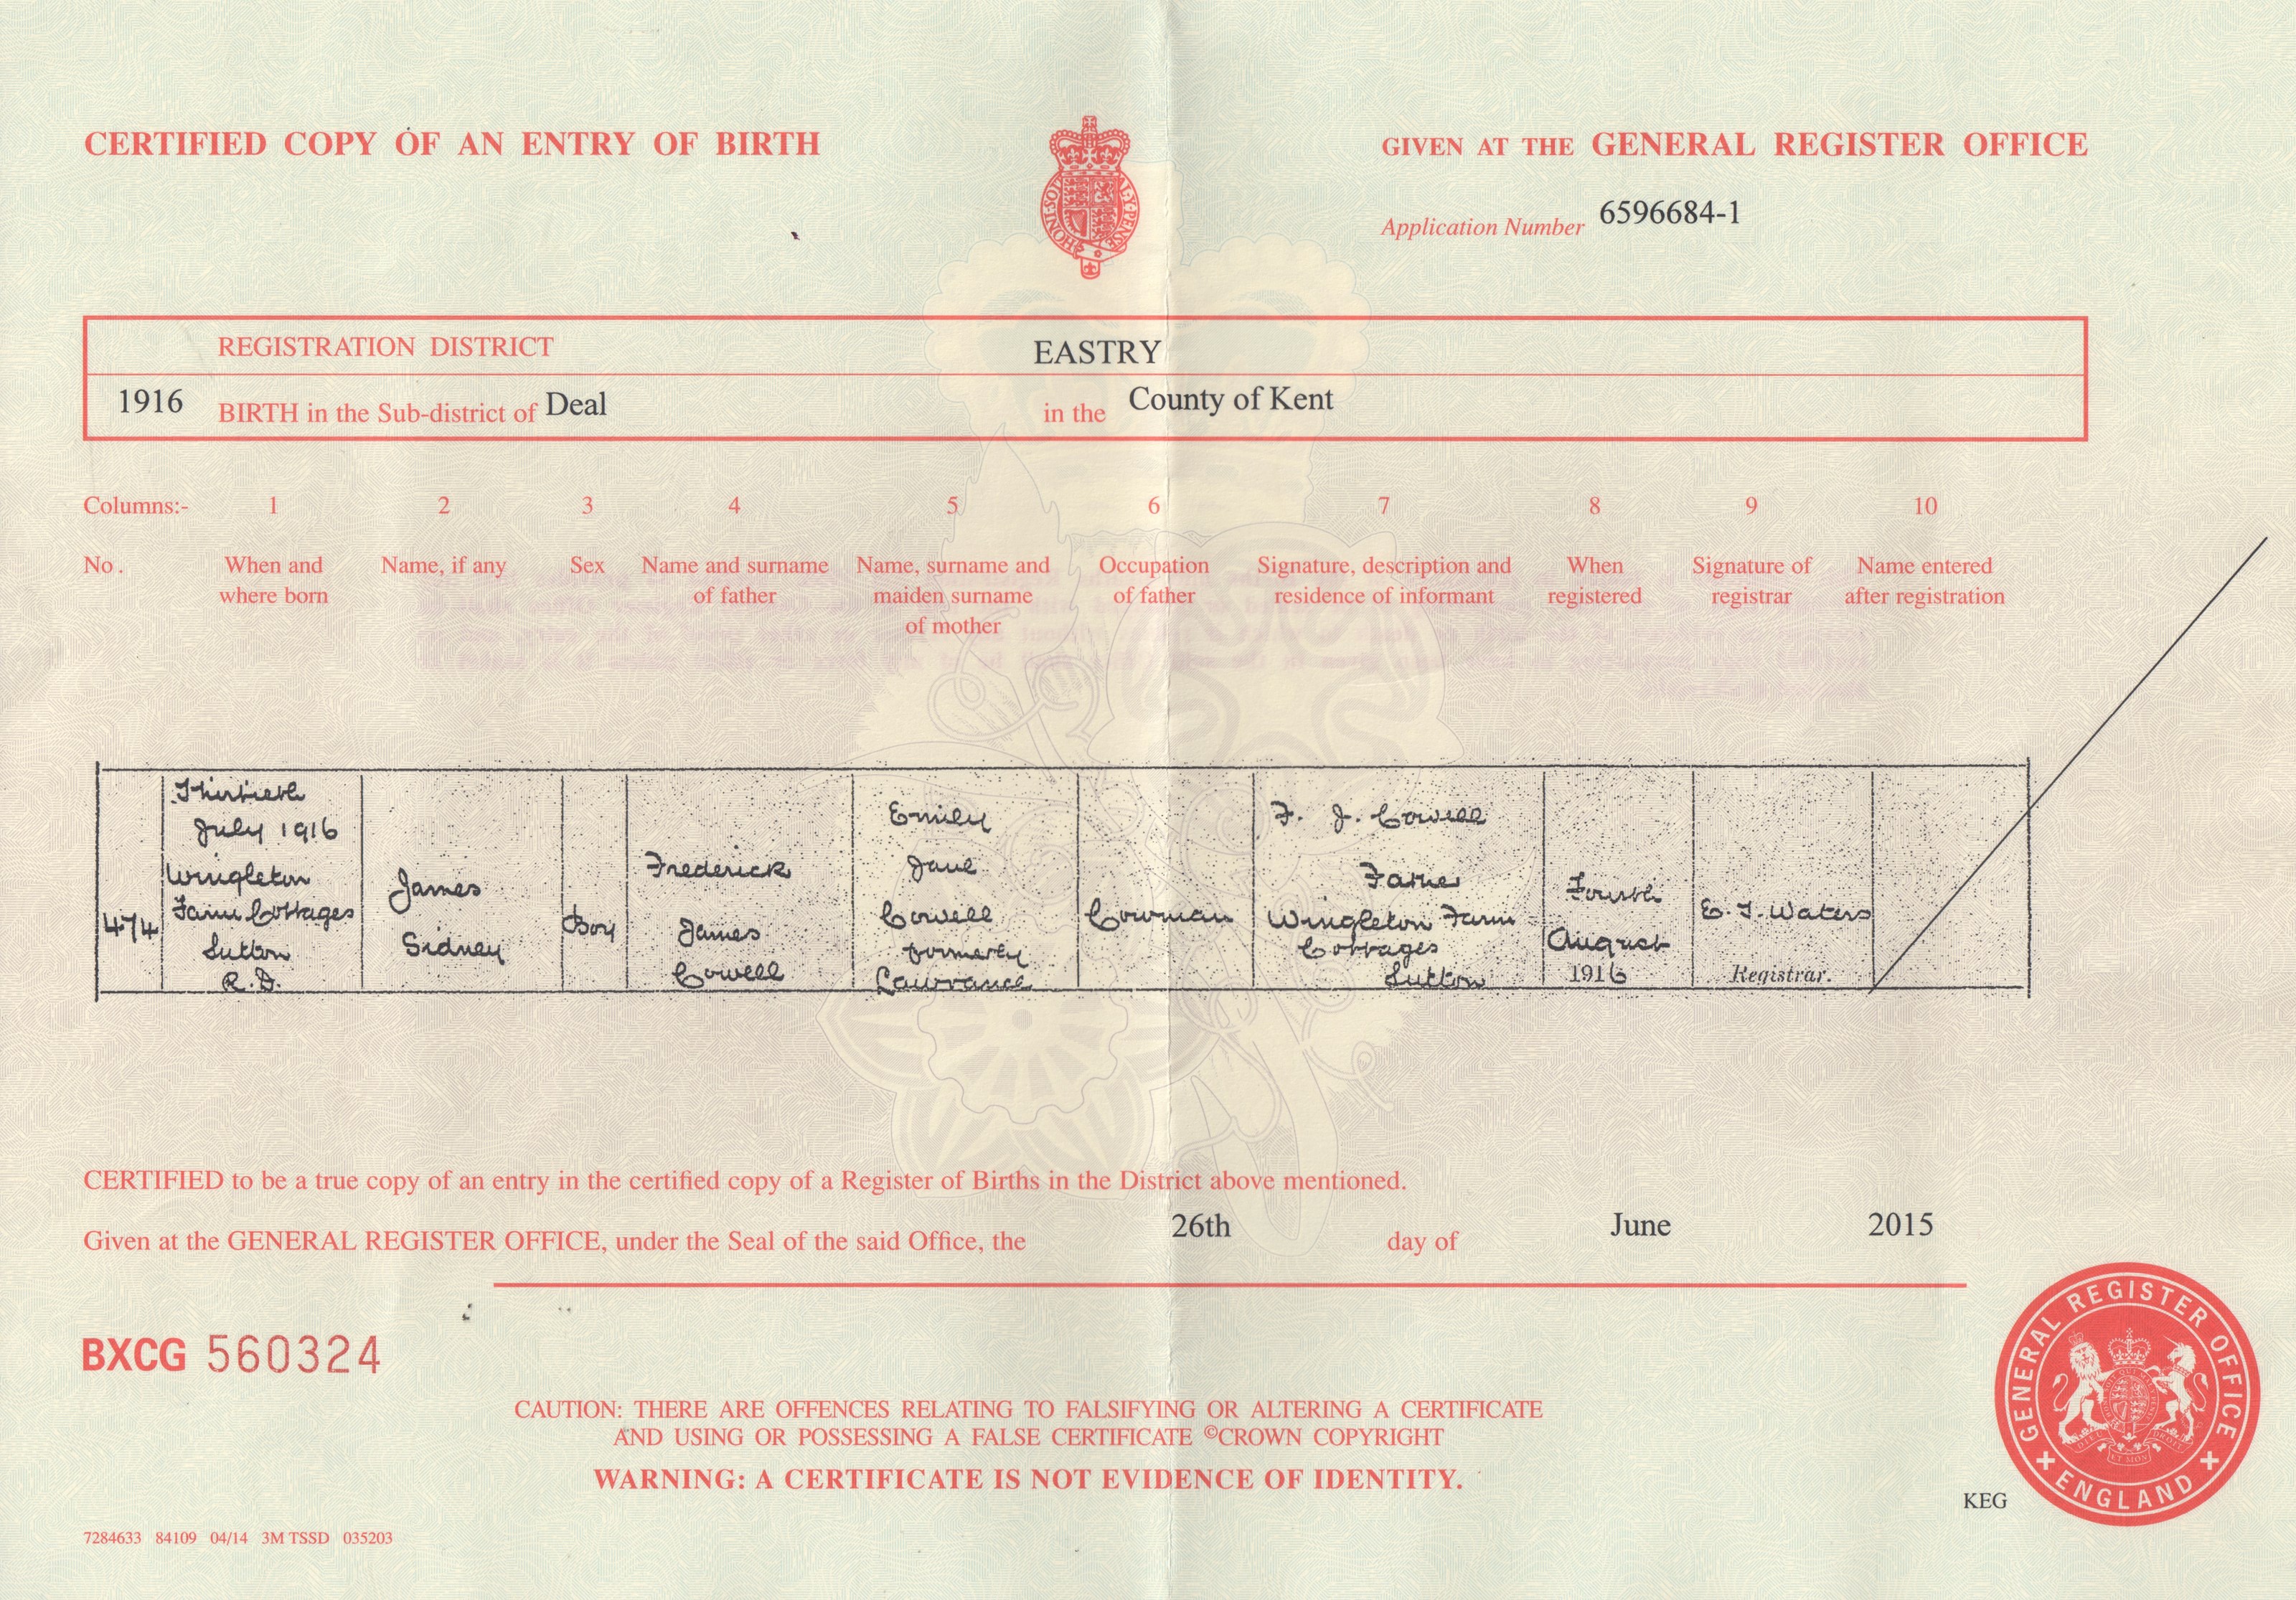 CERTIFIED COPY OF AN ENTRY OF BIRTH
GIVEN AT THE GENERAL REGISTER OFFICE
HONI·SOIT·QUI·MAL·Y·PENSE
Application Number 6596684-1
REGISTRATION DISTRICT EASTRY
1916 BIRTH in the Sub-district of Deal in the County of Kent
Columns:- 1 2 3 4 5 6 7 8 9 10
No. When and Name, if any Sex Name and surname Name, surname and Occupation Signature, description and When Signature of Name entered
where born of father maiden surname of father residence of informant registered registrar after registration
of mother
474
Thirtieth
July 1916
Wingleton
Farm Cottages
Sutton
R.D.
James
Sidney
Boy
Frederick
James
Cowell
Emily
Jane
Cowell
formerly
Lawrance
Cowman
F. J. Cowell
Father
Wingleton Farm
Cottages
Sutton
Fourth
August
1916
E. J. Waters
Registrar.
CERTIFIED to be a true copy of an entry in the certified copy of a Register of Births in the District above mentioned.
Given at the GENERAL REGISTER OFFICE, under the Seal of the said Office, the 26th day of June 2015
BXCG 560324
CAUTION: THERE ARE OFFENCES RELATING TO FALSIFYING OR ALTERING A CERTIFICATE
AND USING OR POSSESSING A FALSE CERTIFICATE ©CROWN COPYRIGHT
WARNING: A CERTIFICATE IS NOT EVIDENCE OF IDENTITY.
GENERAL REGISTER OFFICE
ENGLAND
KEG
7284633 84109 04/14 3M TSSD 035203